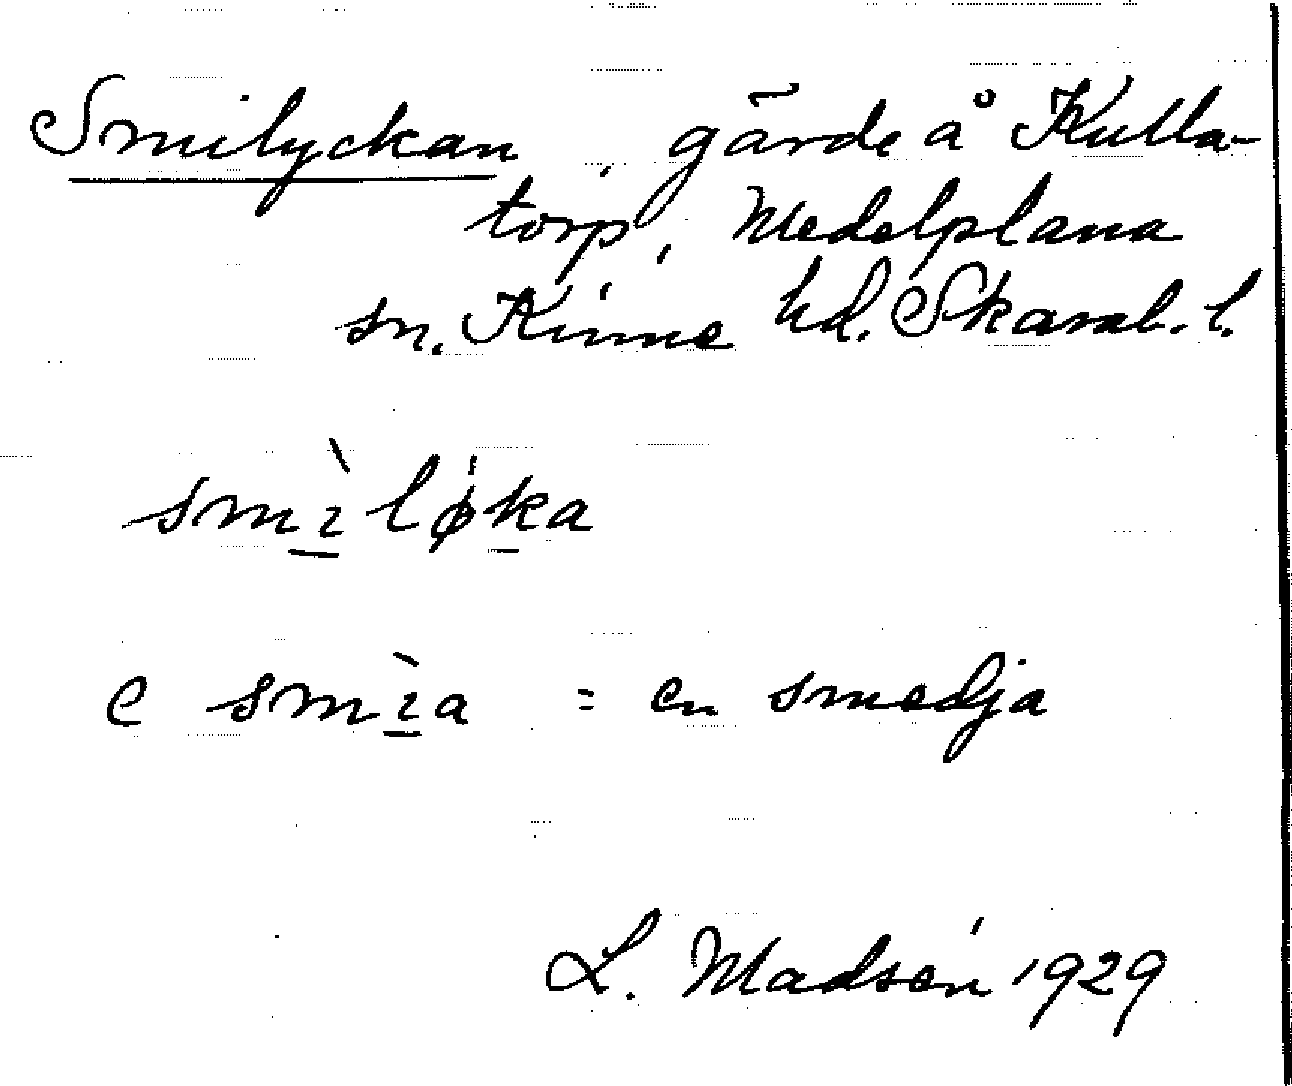 Smilyckan, gärde å Kulla-
torp, Medelplana
sn. Kinne hd. Skarab. l.
smìløka
e smìa = en smedja
L. Madsén 1929